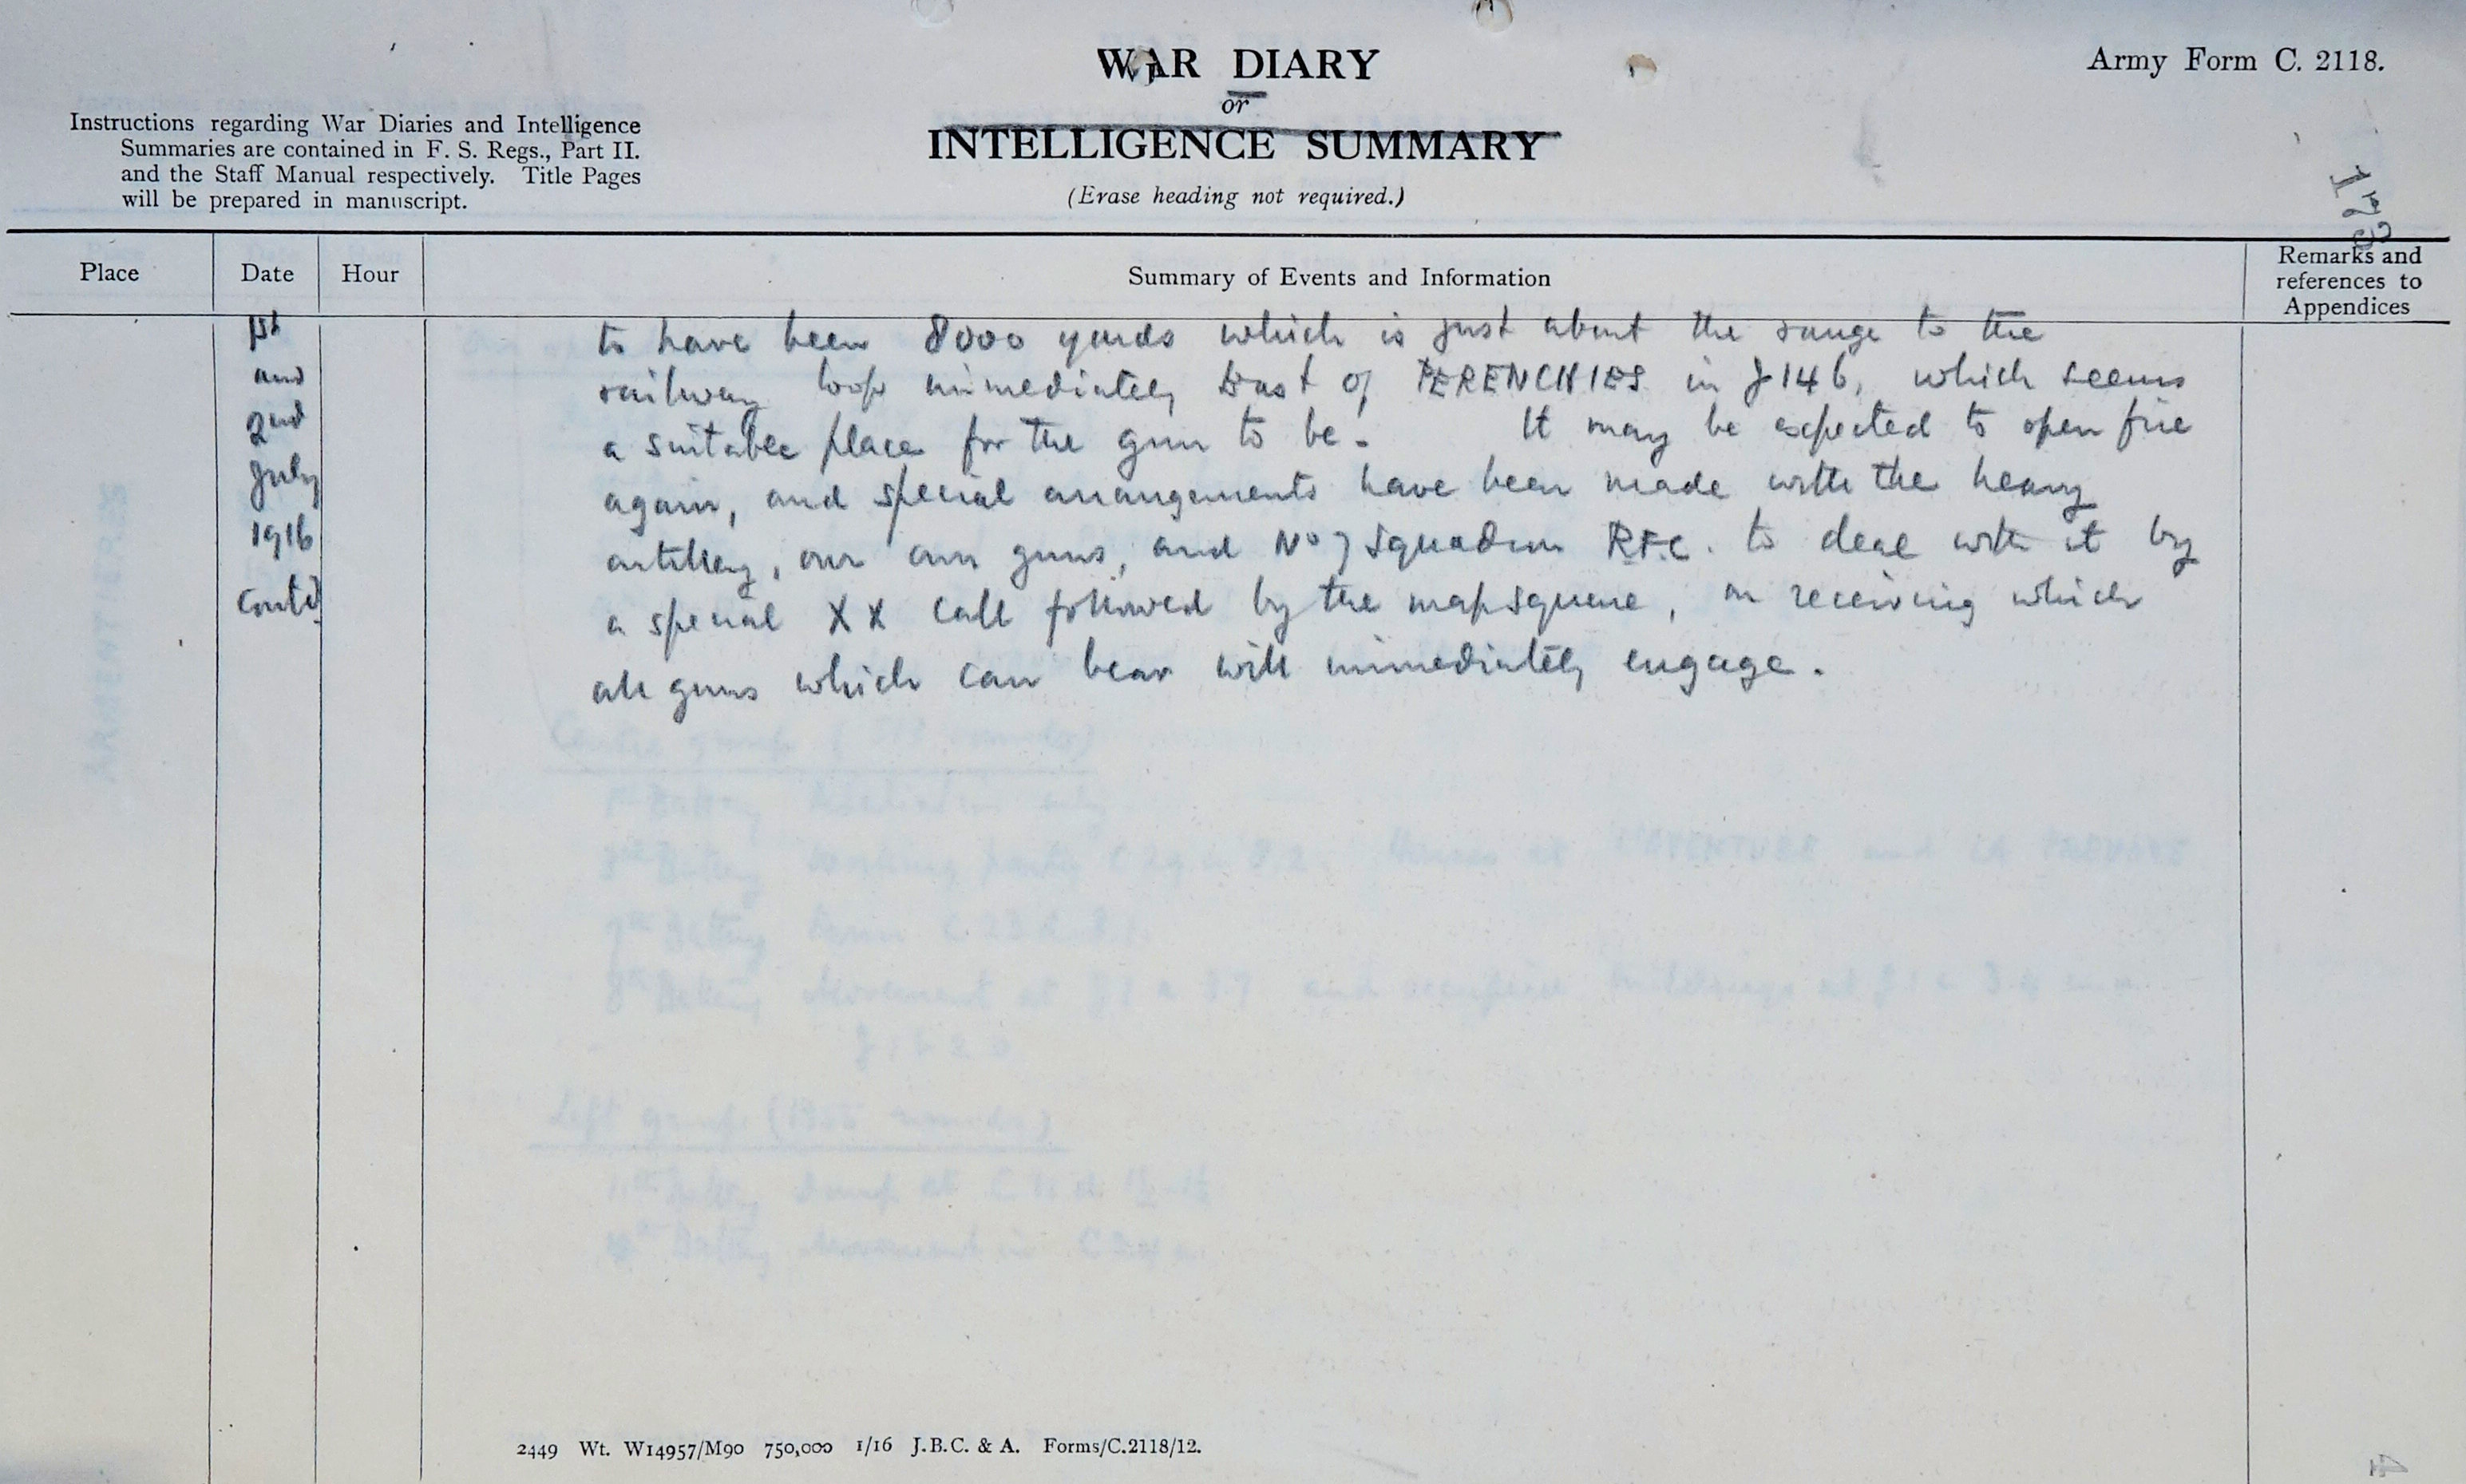 WAR DIARY
or
INTELLIGENCE SUMMARY
(Erase heading not required.)
Army Form C. 2118.
Instructions regarding War Diaries and Intelligence
Summaries are contained in F. S. Regs., Part II.
and the Staff Manual respectively. Title Pages
will be prepared in manuscript.
173
Place Date Hour Summary of Events and Information Remarks and
references to
Appendices
1st
and
2nd
July
1916
Contd
to have been 8000 yards which is just about the range to the
railway loop immediately East of PERENCHIES in J14b, which seems
a suitable place for the gun to be. It may be expected to open fire
again, and special arrangements have been made with the heavy
artillery, our own guns, and No 7 Squadron R.F.C. to deal with it by
a special XX call followed by the map square, on receiving which
all guns which can bear will immediately engage.
2449 Wt. W14957/M90 750,000 1/16 J.B.C. & A. Forms/C.2118/12.
4